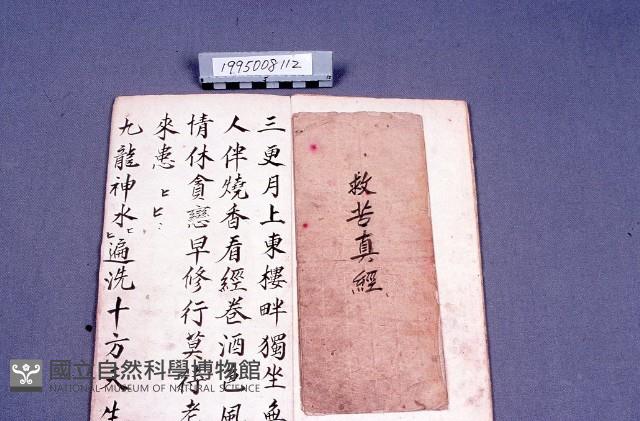 1995008112
救苦真經
三更月上東樓畔獨坐無
人伴燒香看經卷酒色風
情休貪戀早修行莫待老
來患
九龍神水遍洗十方
國立自然科學博物館
NATIONAL MUSEUM OF NATURAL SCIENCE